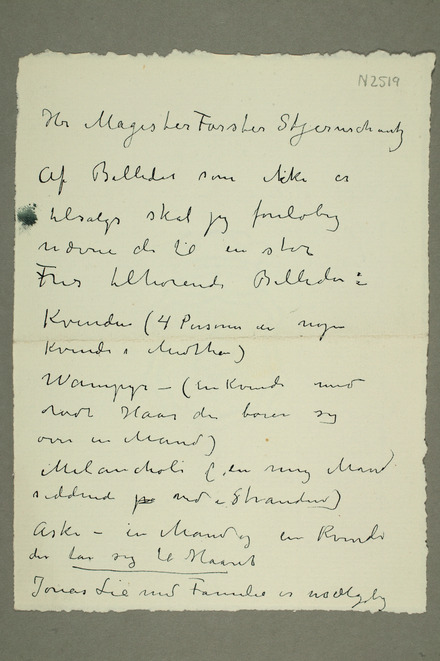 N2519
Hr Magister Forster Stjernschantz
Af Billeder som ikke er
tilsalgs skal jeg foreløbig
nævne de til en stor
Fries tilhørende Billeder:
Kvinden (4 Personer en nøgen
Kvinde i Midten)
Wampyr – (En Kvinde med
rødt Haar der bøier sig
over en Mand)
Melancholi (en ung Mand
siddende ved Stranden)
Aske – en Mand og en Kvinde
der tar sig til Haaret
Jonas Lie med Familie er